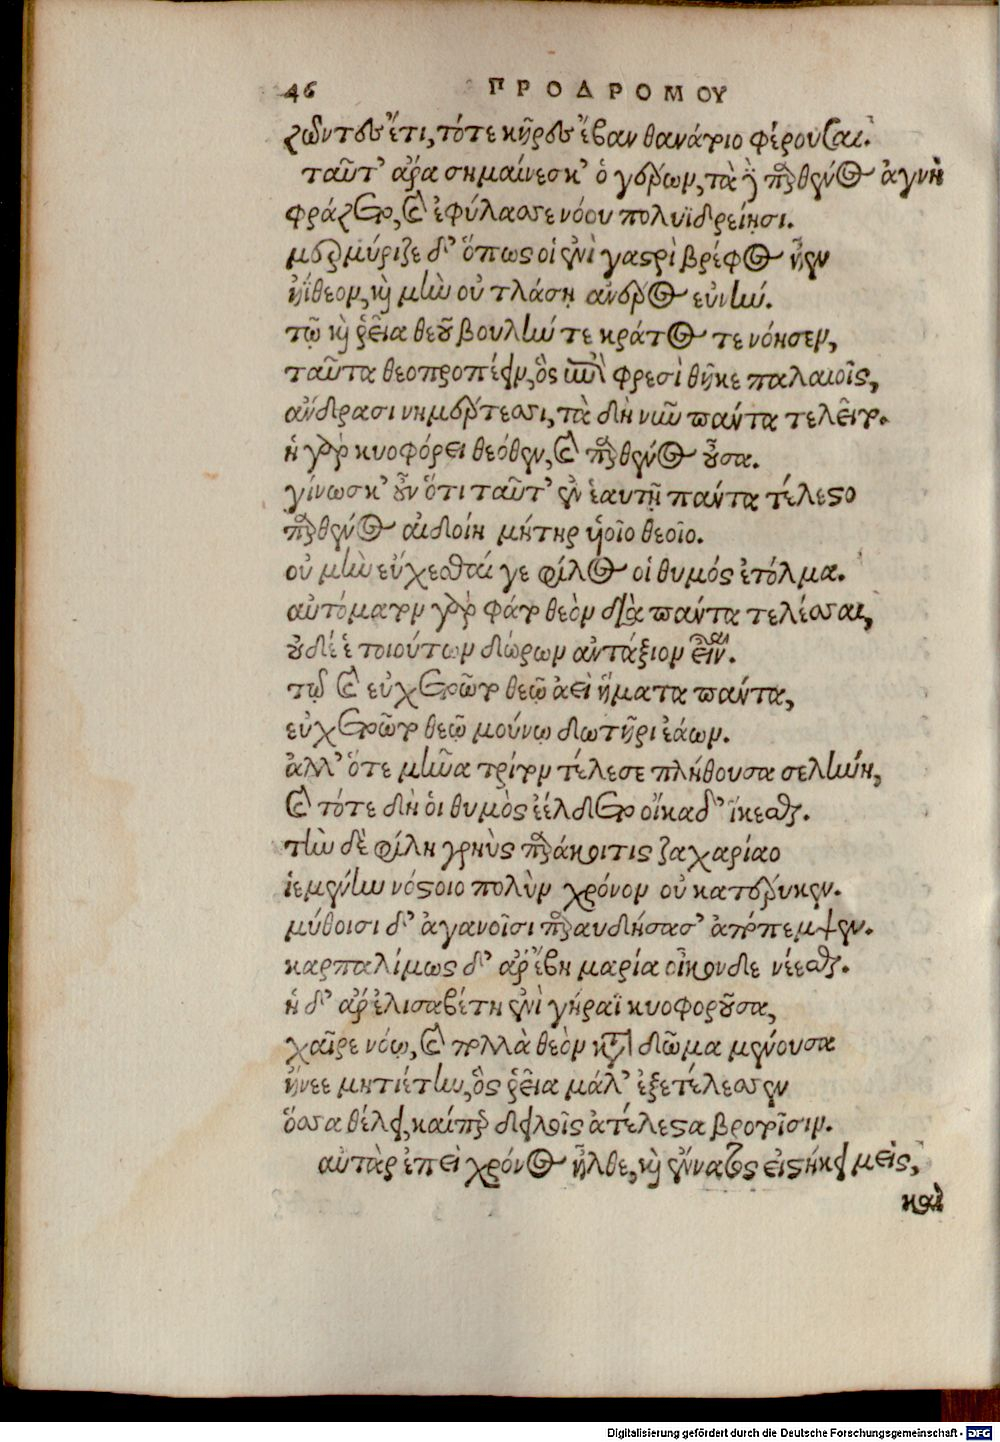 46 ΠΡΟΔΡΟΜΟΥ
ζῶντας ἔτι, τότε κῆρας ἔβαν θανάτοιο φέρουσαι.
ταῦτ' ἄρα σημαίνεσκ' ὁ γέρων, τὰ δὲ παρθένος ἁγνὴ
φράζετο, καὶ ἐφύλασσε νόου πολυϊδρείῃσι.
μερμύριζε δ' ὅπως οἱ ἐνὶ γαστρὶ βρέφος ἦεν
ἠΐθεον, καὶ μὴν οὐ τλάση ἀνέρος εὐνήν.
τῷ καὶ ῥεῖα θεοῦ βουλήν τε κράτος τε νόησεν,
ταῦτα θεοπροπέειν, ὃς ἐπὶ φρεσὶ θῆκε παλαιοῖς,
ἀνδράσι νημερτέσσι, τὰ δὴ νῦν πάντα τελεῖτο.
ἡ γὰρ κυοφόρει θεόθεν, καὶ παρθένος οὖσα.
γίνωσκ' οὖν ὅτι ταῦτ' ἐν ἑαυτῇ πάντα τέλεστο
παρθένος αἰδοίη μήτηρ υἱοῖο θεοῖο.
οὐ μὴν εὔχεσθαί γε φίλος οἱ θυμὸς ἐτόλμα.
αὐτόματον γὰρ φάτο θεὸν διὰ πάντα τελέσσαι,
οὐδέ ἑ τοιούτων δώρων ἀντάξιον εἶναι.
τῷ καὶ εὐχετοῶτο θεῷ ἀεὶ ἤματα πάντα,
εὐχετοῶτο θεῷ μούνῳ δωτῆρι ἐάων.
ἀλλ' ὅτε μῆνα τρίτον τέλεσε πλήθουσα σελήνη,
καὶ τότε δὴ οἱ θυμὸς ἐέλδετο οἴκαδ' ἵκεσθαι.
τὴν δὲ φίλη γρηὺς παράκοιτις ζαχαρίαο
ἱεμένην νόστοιο πολὺν χρόνον οὐ κατέρυκεν.
μύθοισι δ' ἀγανοῖσι παραυδήσασ' ἀπέπεμψεν.
καρπαλίμως δ' ἄρ' ἔβη μαρία οἶκόνδε νέεσθαι.
ἡ δ' ἄρ' ἐλισαβέτη ἐνὶ γήραϊ κυοφοροῦσα,
χαῖρε νόῳ, καὶ πολλὰ θεὸν κατὰ δῶμα μένουσα
ἤνεε μητιέτην, ὃς ῥεῖα μάλ' ἐξετέλεσσεν
ὅσσα θέλει, καίπερ δειλοῖς ἀτέλεστα βροτοῖσιν.
αὐτὰρ ἐπεὶ χρόνος ἦλθε, καὶ ἔννατος εἱστήκει μεὶς,
καὶ
Digitalisierung gefördert durch die Deutsche Forschungsgemeinschaft - DFG